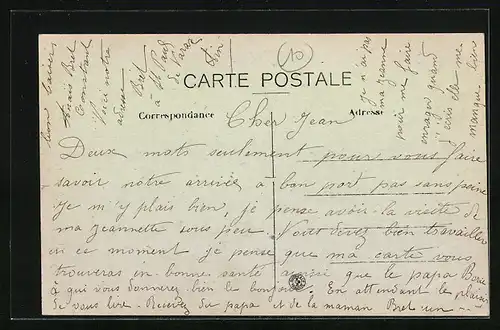 CARTE POSTALE
Correspondance
Adresse
Cher Jean
Deux mots seulement pour vous faire
savoir notre arrivée à bon port pas sans peine
je m'y plais bien, je pense avoir la visite de
ma jeannette sous peu. Vous devez bien travailler
en ce moment je pense que ma carte vous
trouveras en bonne santé ainsi que le papa
à qui vous donnerez bien le bonjour. En attendant le plaisir
de vous lire. Recevez du papa et de la maman Bret un
bons baisers
Bret
Voici notre
adresse
Bret
à St Paul
de Varax
Ain
je n'ai pas
ma jeanne
pour me faire
enrager quand
j'écris elle me
manque bien